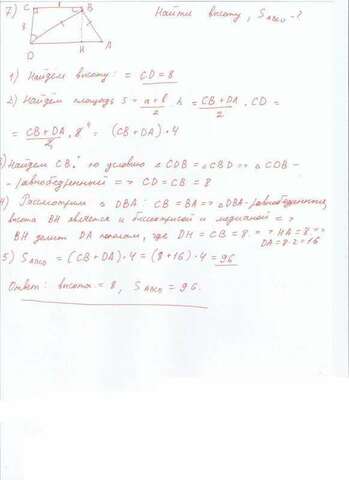 7) C B Найти высоту, S ABCD - ?
8
D H A
1) Найдем высоту: = CD = 8
2) Найдём площадь S = a+b/2 · h = CB + DA/2 · CD =
= CB + DA/2 · 8 4 = (CB + DA) · 4
3) Найдем CB: по условию ∠CDB = ∠CBD => △CDB -
- равнобедренный => CD = CB = 8
4) Рассмотрим △DBA: CB = BA => △DBA - равнобедренный,
высота BH является и биссектрисой и медианой =>
BH делит DA пополам, где DH = CB = 8 => HA = 8 =>
DA = 8·2 = 16
5) S ABCD = (CB + DA) · 4 = (8 + 16) · 4 = 96
Ответ: высота = 8, S ABCD = 96.